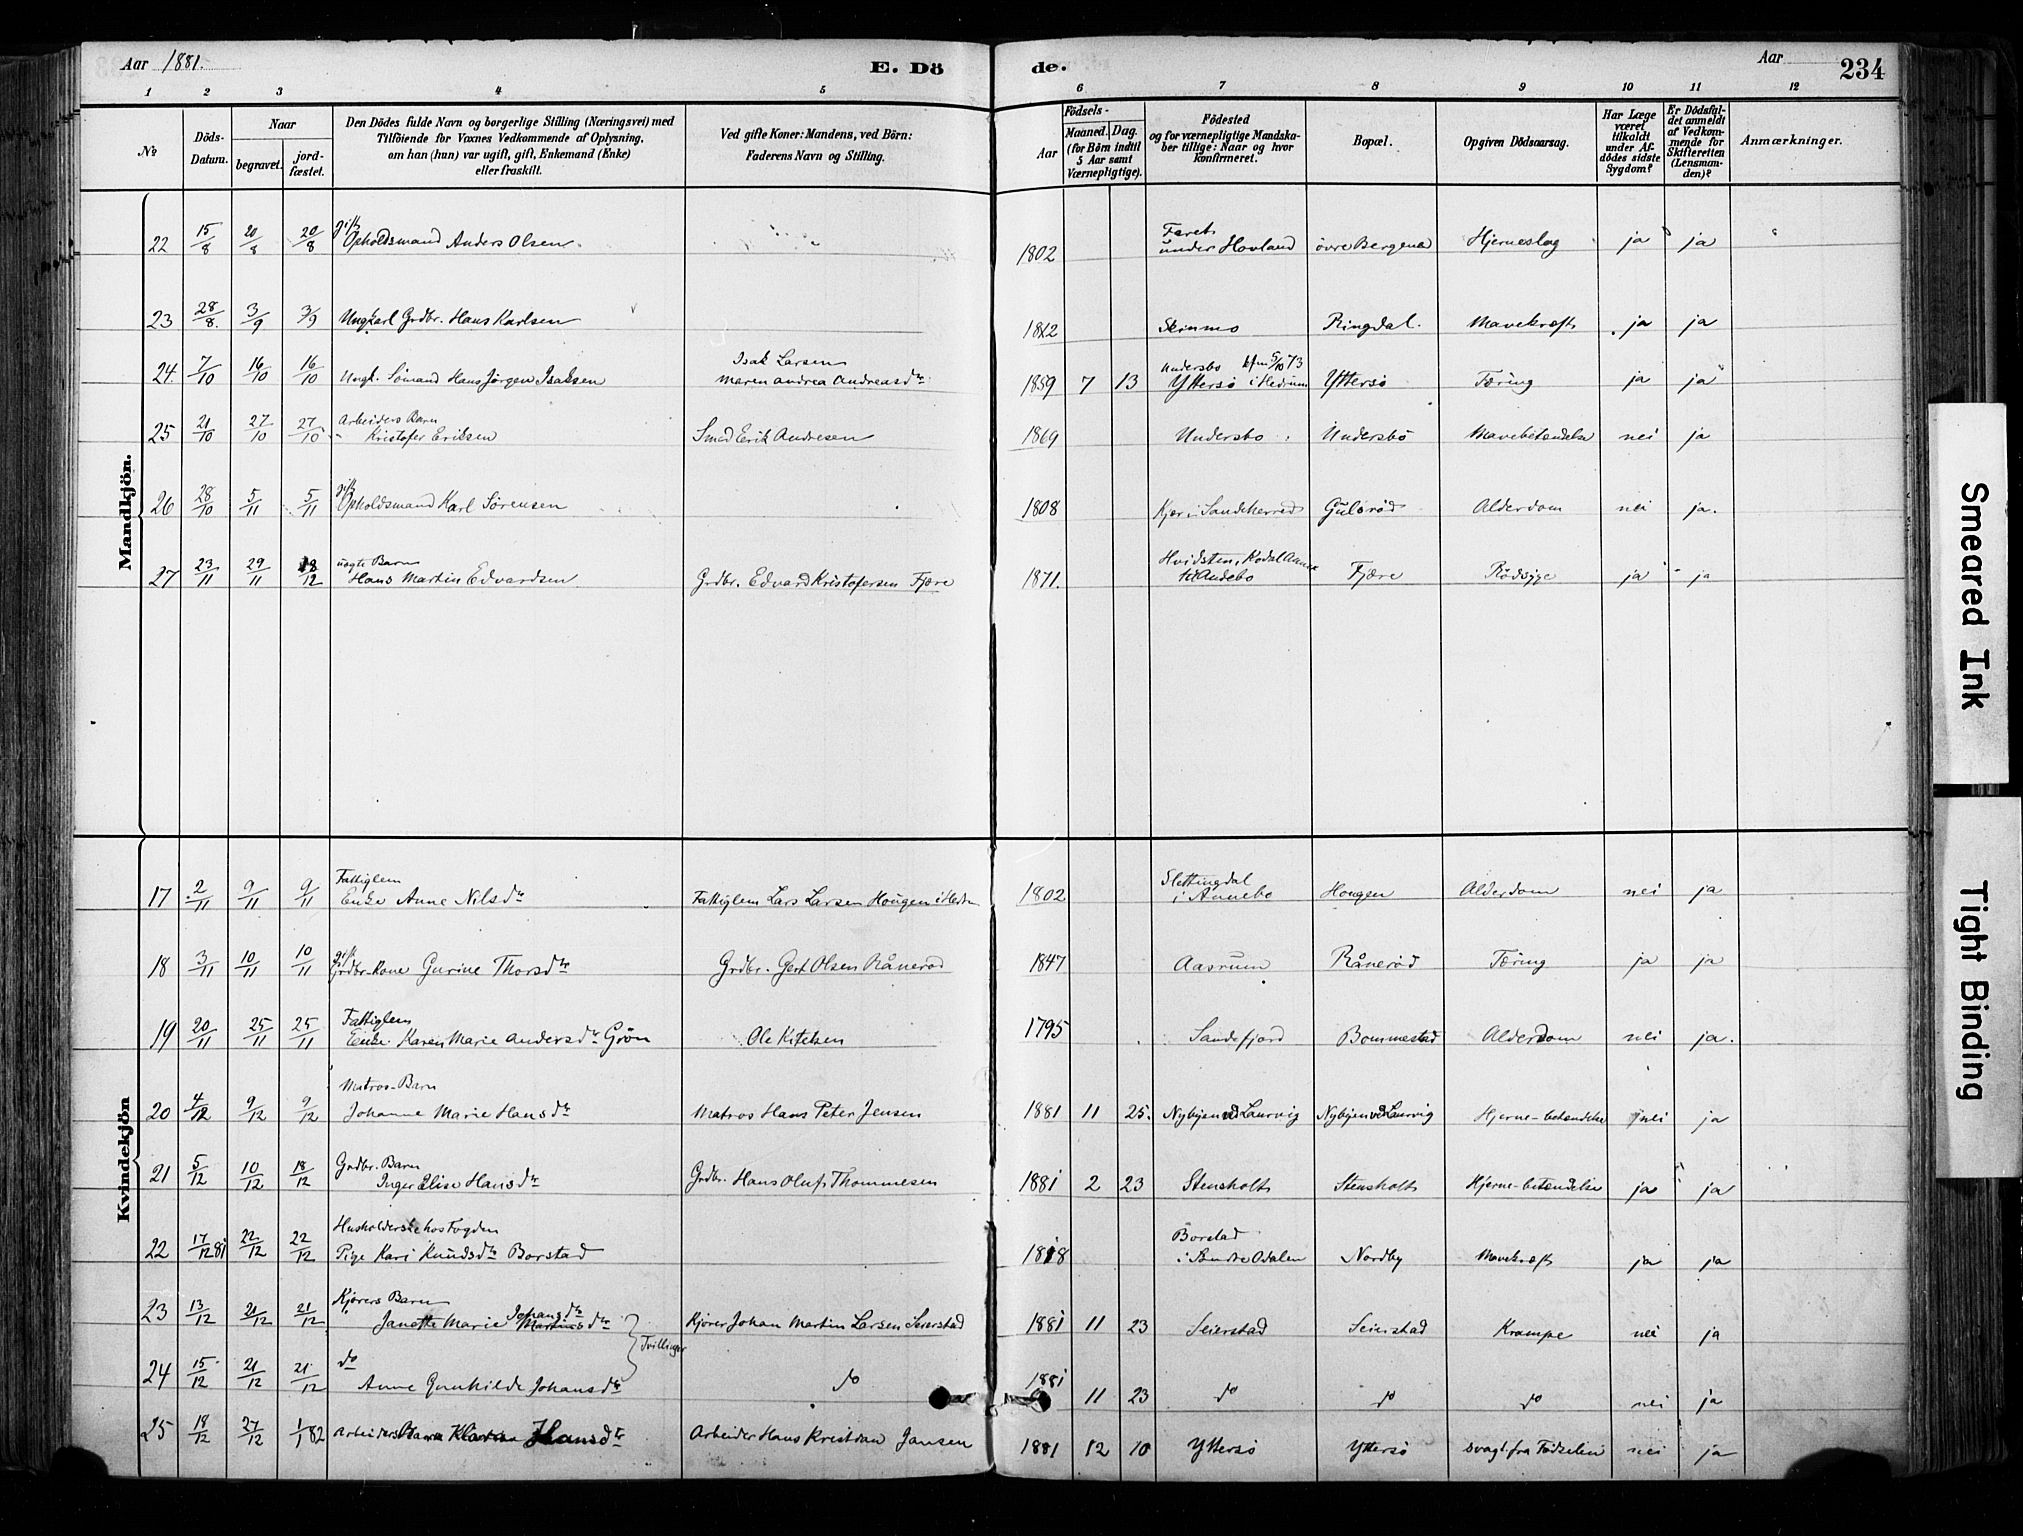 Aar 1881.
E. Dö
de.
Aar
234
1 2 3 4 5 6 7 8 9 10 11 12
No
Döds-Datum.
Naar
begravet.
jordfæstet.
Den Dödes fulde Navn og borgerlige Stilling (Næringsvei) med
Tilföiende for Voxnes Vedkommende af Oplysning,
om han (hun) var ugift, gift, Enkemand (Enke)
eller fraskilt.
Ved gifte Koner: Mandens, ved Börn:
Faderens Navn og Stilling.
Födsels-
Aar
Maaned.
Dag.
(for Börn indtil
5 Aar samt
Værnepligtige).
Födested
og for værnepligtige Mandska-
ber tillige: Naar og hvor
konfirmeret.
Bopæl.
Opgiven Dödsaarsag.
Har Læge
været
tilkaldt
under Af-
dödes sidste
Sygdom?
Er Dödsfal-
det anmeldt
af Vedkom-
mende for
Skifteretten
(Lensman-
den)?
Anmærkninger.
Mandkjön.
22 15/8 20/8 20/8 gift Opholdsmand Anders Olsen 1802 under Hovland övre Bergene Hjerneslag ja ja
23 28/8 3/9 3/9 Ungkarl Grdbr. Hans Karlsen 1812 Skinmo Ringdal. Mavekræft ja ja
24. 7/10 16/10 16/10 Ungk. Sömand Hans Jörgen Isaksen Isak Larsen Maren Andrea Andreasdtr 1859 7 13 Undersbo kfm 5/10 73 Yttersö i Hedrum Yttersö Tæring ja ja
25 21/10 27/10 27/10 Arbeiders Barn Kristofer Eriksen Smed Erik Andresen 1869 Undersbo Undersbö Mavebetændelse nei ja
26 28/10 5/11 5/11 gift Opholdsmand Karl Sörensen 1808 Kjær i Sandeherred Gulsröd Alderdom nei ja.
27 23/11 29/11 18/12 uægte Barn Hans Martin Edvardsen Grdbr. Edvard Kristofersen Fjære 1871. Hvidsten, Kodal Annex til Andebo Fjære Rödsyge ja ja
Kvindekjön
17 2/11 9/11 9/11 Fattiglem Enke Anne Nilsdtr Fattiglem Lars Larsen Hougen i Hedrm 1802 Slettingdal i Annebo Hougen Alderdom nei ja
18 3/11 10/11 10/11 gift Grdbr-Kone Gurine Thorsdtr Grdbr. Gert Olsen Råneröd 1847 Aasrum Rånerød Tæring ja ja
19 20/11 25/11 25/11 Fattiglem Enke Karen Marie Andersdtr Grön Ole Kitelsen 1795 Sandefjord Bommestad Alderdom nei ja.
20 4/12 9/12 9/12 Matros-Barn Johanne Marie Hansdtr Matros Hans Peter Jensen 1881 11 25. Nybyen ved Laurvig Nybyen ved Laurvig Hjerne-betændelse nei ja
21 5/12 10/12 18/12 Grdbr. Barn Inger Elise Hansdtr Grdbr. Hans Oluf Thommesen 1881 2 23 Stensholt Stensholt Hjerne-betændelse ja ja
22 17/12 81 22/12 22/12 Husholderske hos Fogden Pige Kari Knudsdtr Borstad 1818 Borstad i Søndre Odalen Nordby Mavekræft ja ja
23 13/12 21/12 21/12 Kjörers Barn Janette Marie Johansdtr Martinsdtr Kjörer Johan Martin Larsen Seierstad 1881 11 23 Seierstad Seierstad Krampe nei ja
Tvillinger
24 15/12 21/12 21/12 do Anne Gunhilde Johansdtr do 1881 11 23 do do do nei ja
25 18/12 27/12 1/1 82 Arbeiders Barn Hansdtr Arbeider Hans Kristian Jansen 1881 12 10 Yttersö Yttersö svag fra Födselen nei ja
Smeared Ink
Tight Binding